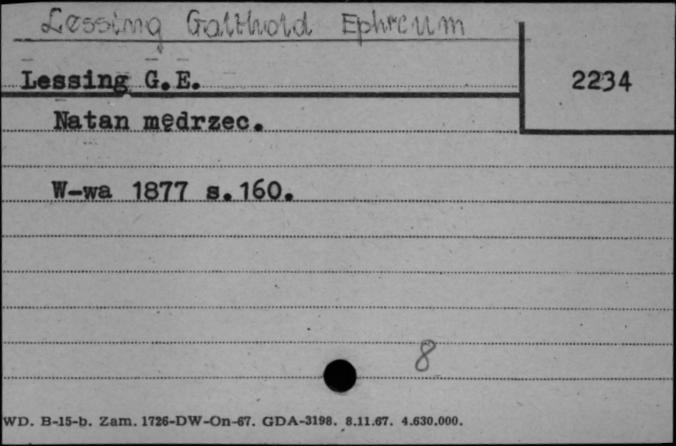 Lessing Gotthold Ephreum
Lessing G.E.
2234
Natan mędrzec.
W-wa 1877 s.160.
8
WD. B-15-b. Zam. 1726-DW-On-67. GDA-3198. 8.11.67. 4.630.000.